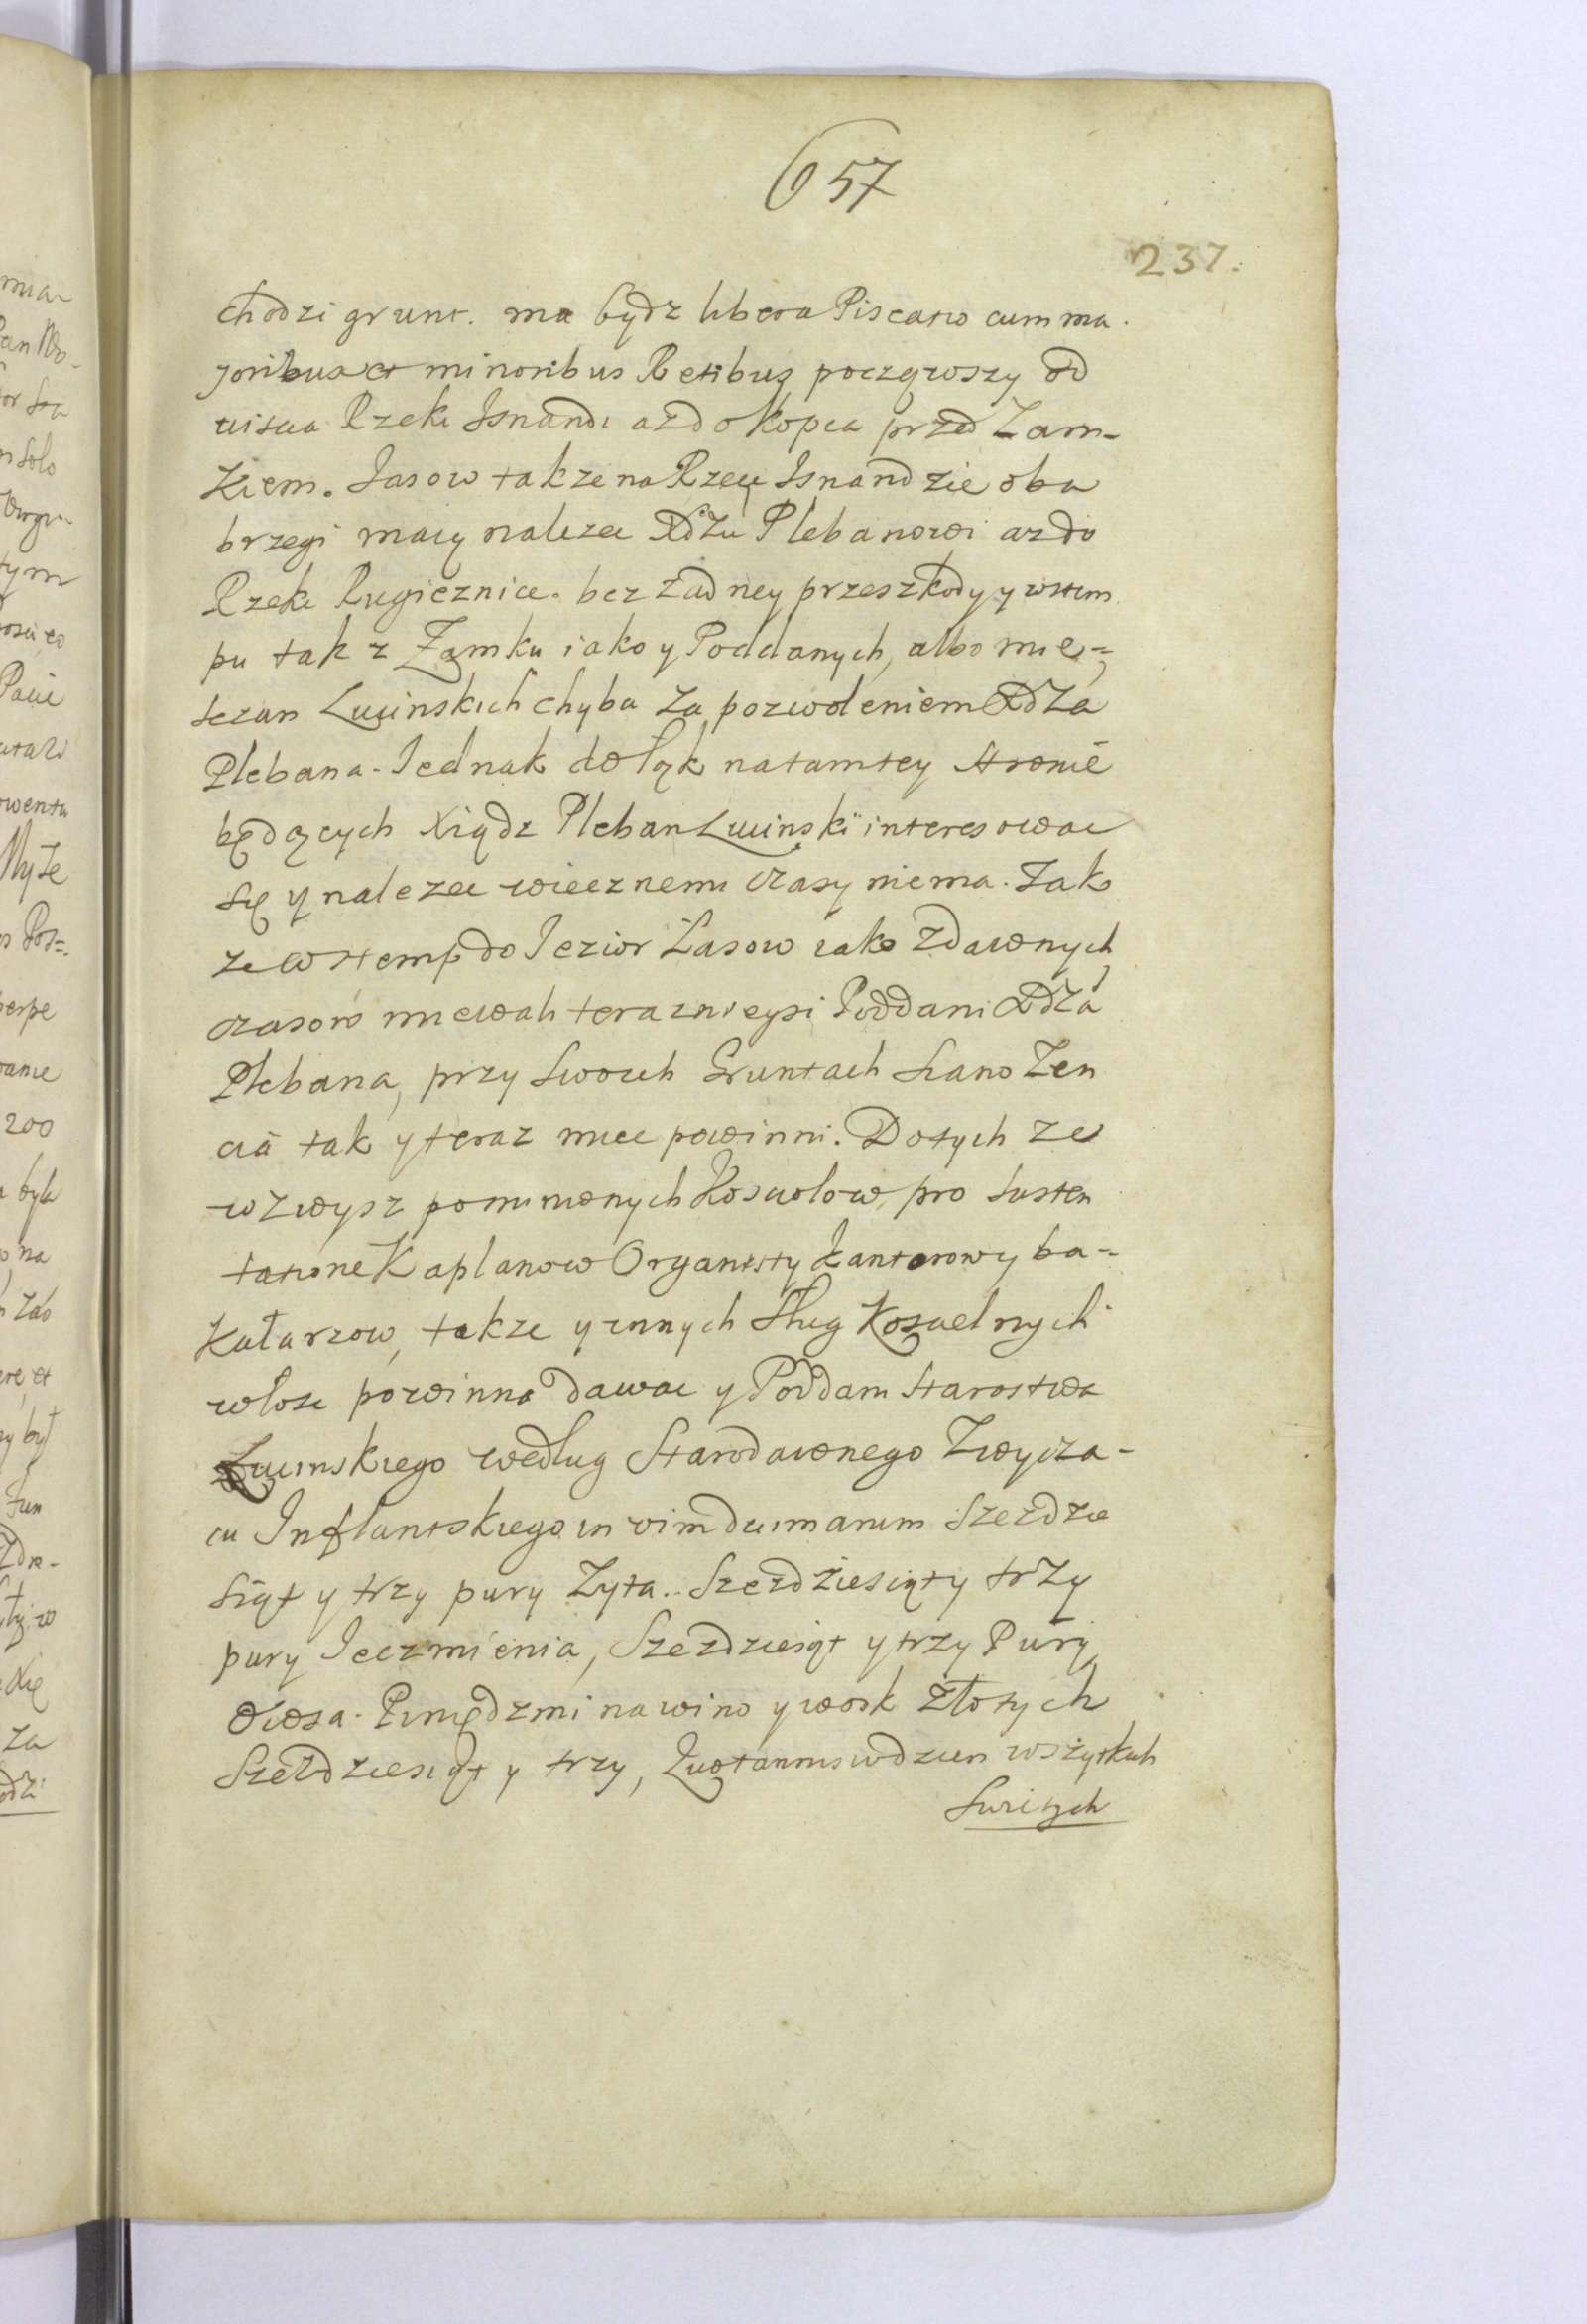 657
237.
chodzi grunt. ma bydz libera Piscatio cum ma-
joribus et minoribus Retibus począwszy od
uiscia Rzeki Isnandi az do kopca przed Zam-
kiem. Lasow takze na Rzecę Isnandzie oba
brzegi maią nalezec Xdzu Plebanowi az do
Rzeki Rugieznice. bez zadney przeszkody y wstem
pu tak z Zamku iako y Poddanych, albo mie-
sczan Lucinskich chyba za pozwoleniem Xdza
Plebana. Jednak do łąk na tamtey stronie
będących Xiądz Pleban Lucinski interesowac
się y nalezec wiecznemi czasy niema. Tak
ze wstemp do Jezior Lasow iako zdawnych
czasow miewali teraznieysi Poddani Xdza
Plebana, przy swoich Gruntach Siano Zen
cia tak y teraz miec powinni. Do tych ze
wzwysz pomienionych Kosciolow, pro susten
tatione Kapłanow Organisty Kantorow y ba-
kałarzow, takze y innych Sług Koscielnych
włosc powinna dawac y Poddani Starostwa
Lucinskiego według Starodawnego Zwycza-
iu Inflantskiego in vim decimarum Szezdzie
siąt y trzy pury Zyta. Szezdziesiąt y trzy
pury Jeczmienia, Szezdziesiąt y trzy Pury
Owsa. Pieniędzmi na wino y wosk Złotych
Szezdziesiąt y trzy, wszytkich
Swietych
mia-
solo
tym
Pacie
200
na
et
za